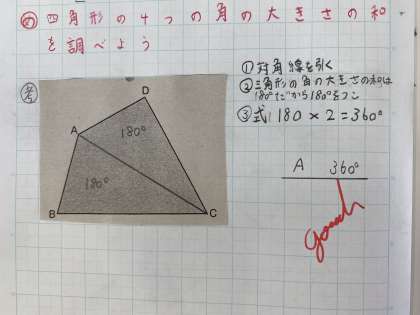 め 四角形の4つの角の大きさの和
を調べよう
考
D
A
180°
180°
B
C
①対角線を引く
②三角形の角の大きさの和は
180°だから180°を2つ
③式 180×2=360°
A 360°
good